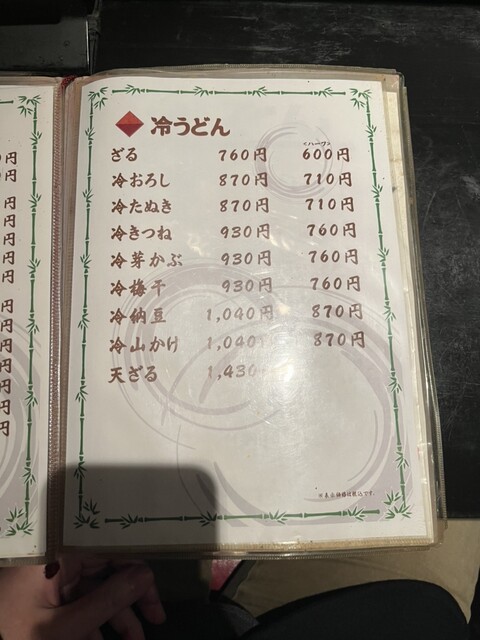 冷うどん
<ハーフ>
ざる 760円 600円
冷おろし 870円 710円
冷たぬき 870円 710円
冷きつね 930円 760円
冷芽かぶ 930円 760円
冷梅干 930円 760円
冷納豆 1,040円 870円
冷山かけ 1,040円 870円
天ざる 1,430
※表示価格は税込です。
円
円
円
円
円
円
円
円
円
円
円
円
円